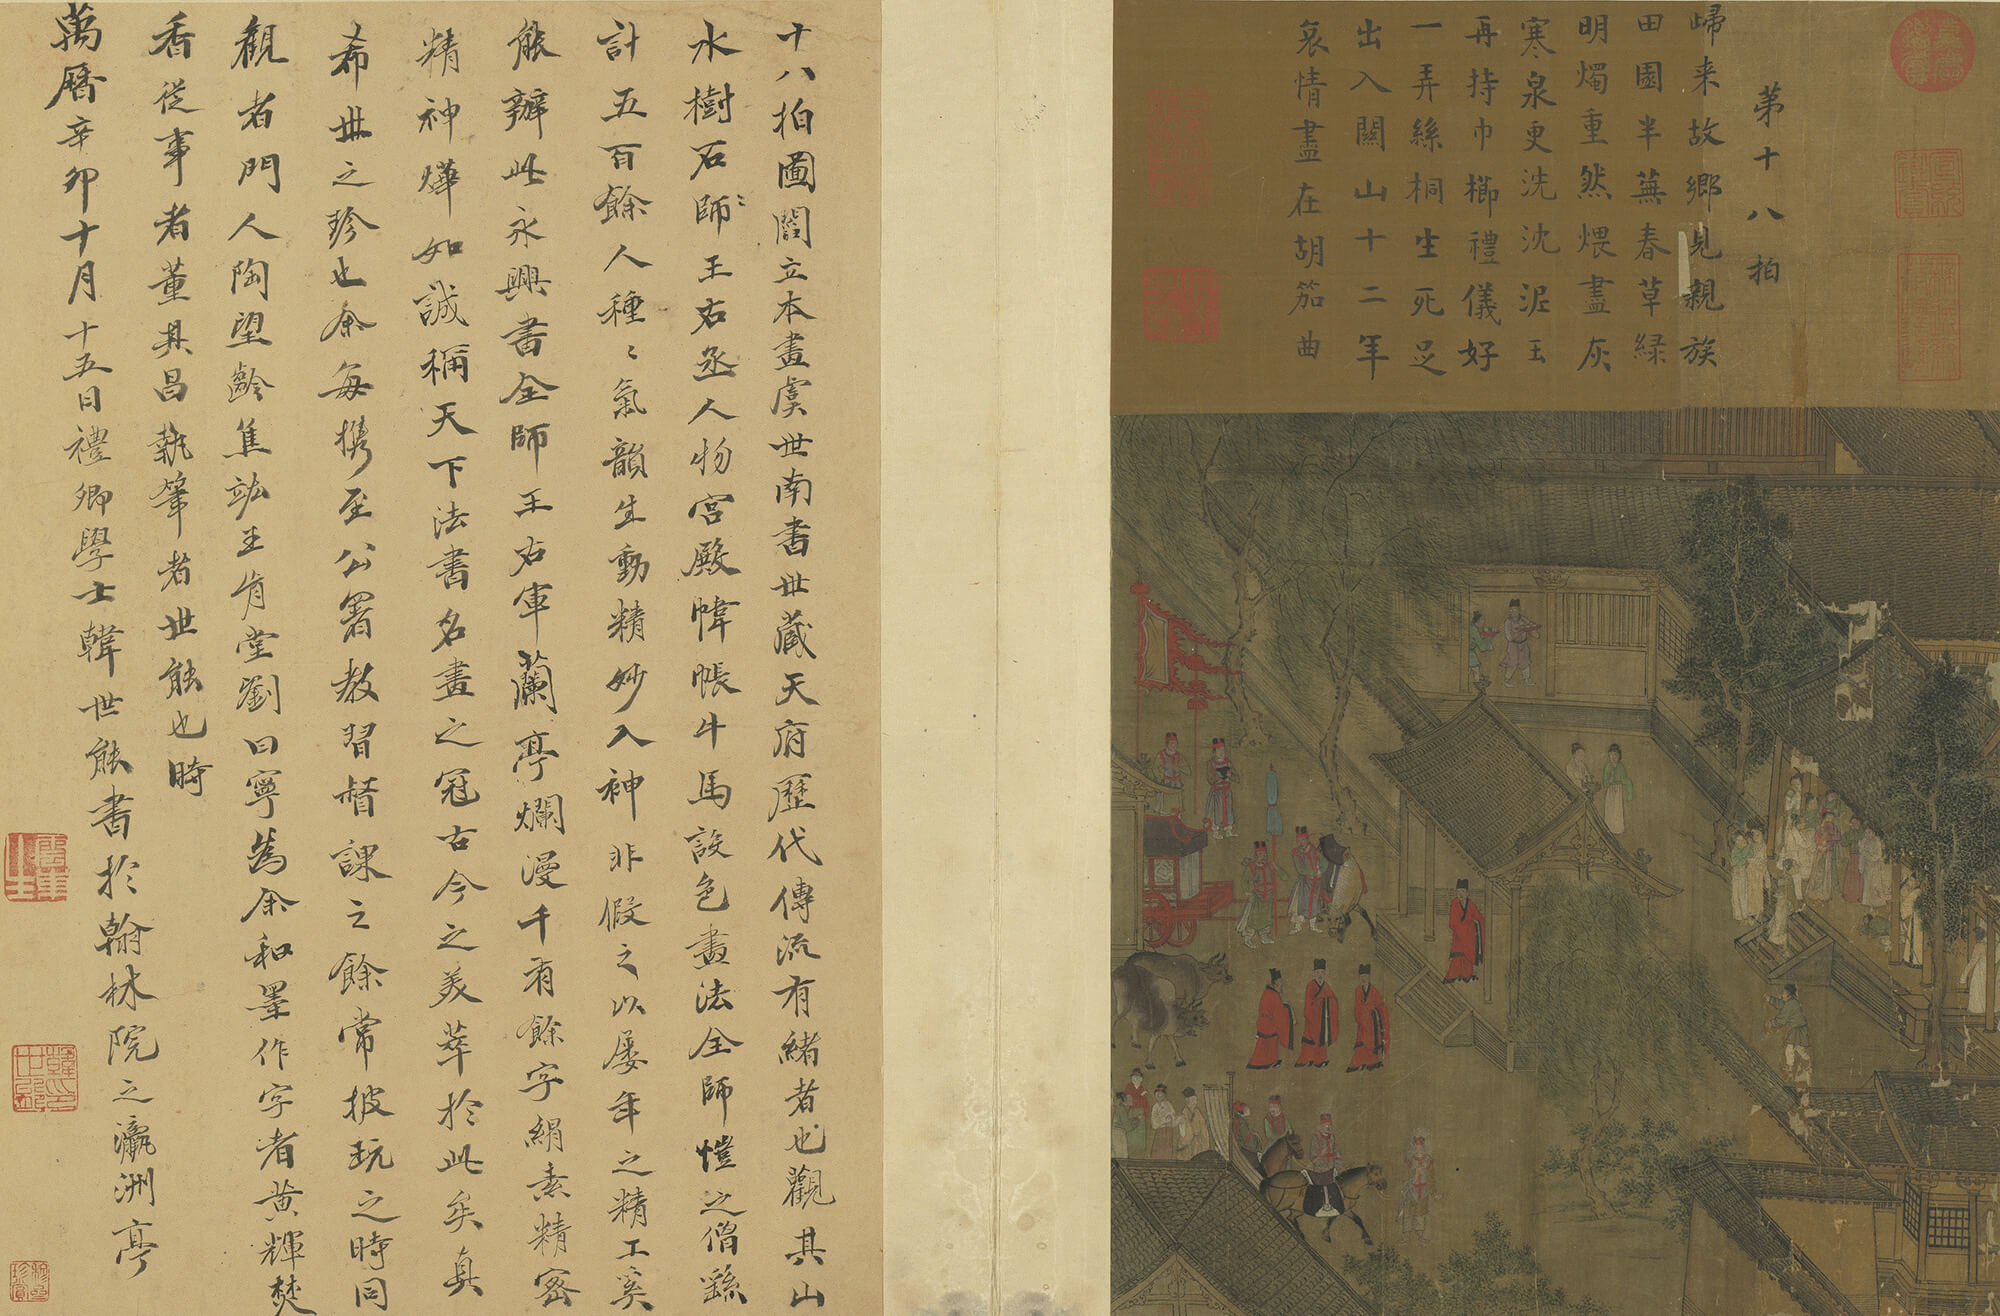 第十八拍
歸来故鄉見親族
田園半蕪春草緑
明燭重然煨盡灰
寒泉更洗沈泥玉
再持巾櫛禮儀好
一弄絲桐生死足
出入關山十二年
哀情盡在胡笳曲
十八拍圖閻立本畫虞世南書世藏天府歷代傳流有緒者也觀其山
水樹石師〻王右丞人物宮殿幃帳牛馬設色畫法全師愷之僧繇
計五百餘人種〻氣韻生動精妙入神非假之以屡年之精工奚
能辦此永興書全師王右軍蘭亭爛漫千有餘字絹素精密
精神燁如誠稱天下法書名畫之冠古今之美萃於此矣真
希世之珍也余每攜至公署教習督課之餘常披玩之時同
觀者門人陶望齡焦竑王肯堂劉曰寧為余和墨作字者黄輝焚
香從事者董其昌執筆者世能也時
萬曆辛卯十月十五日禮卿學士韓世能書於翰林院之瀛洲亭